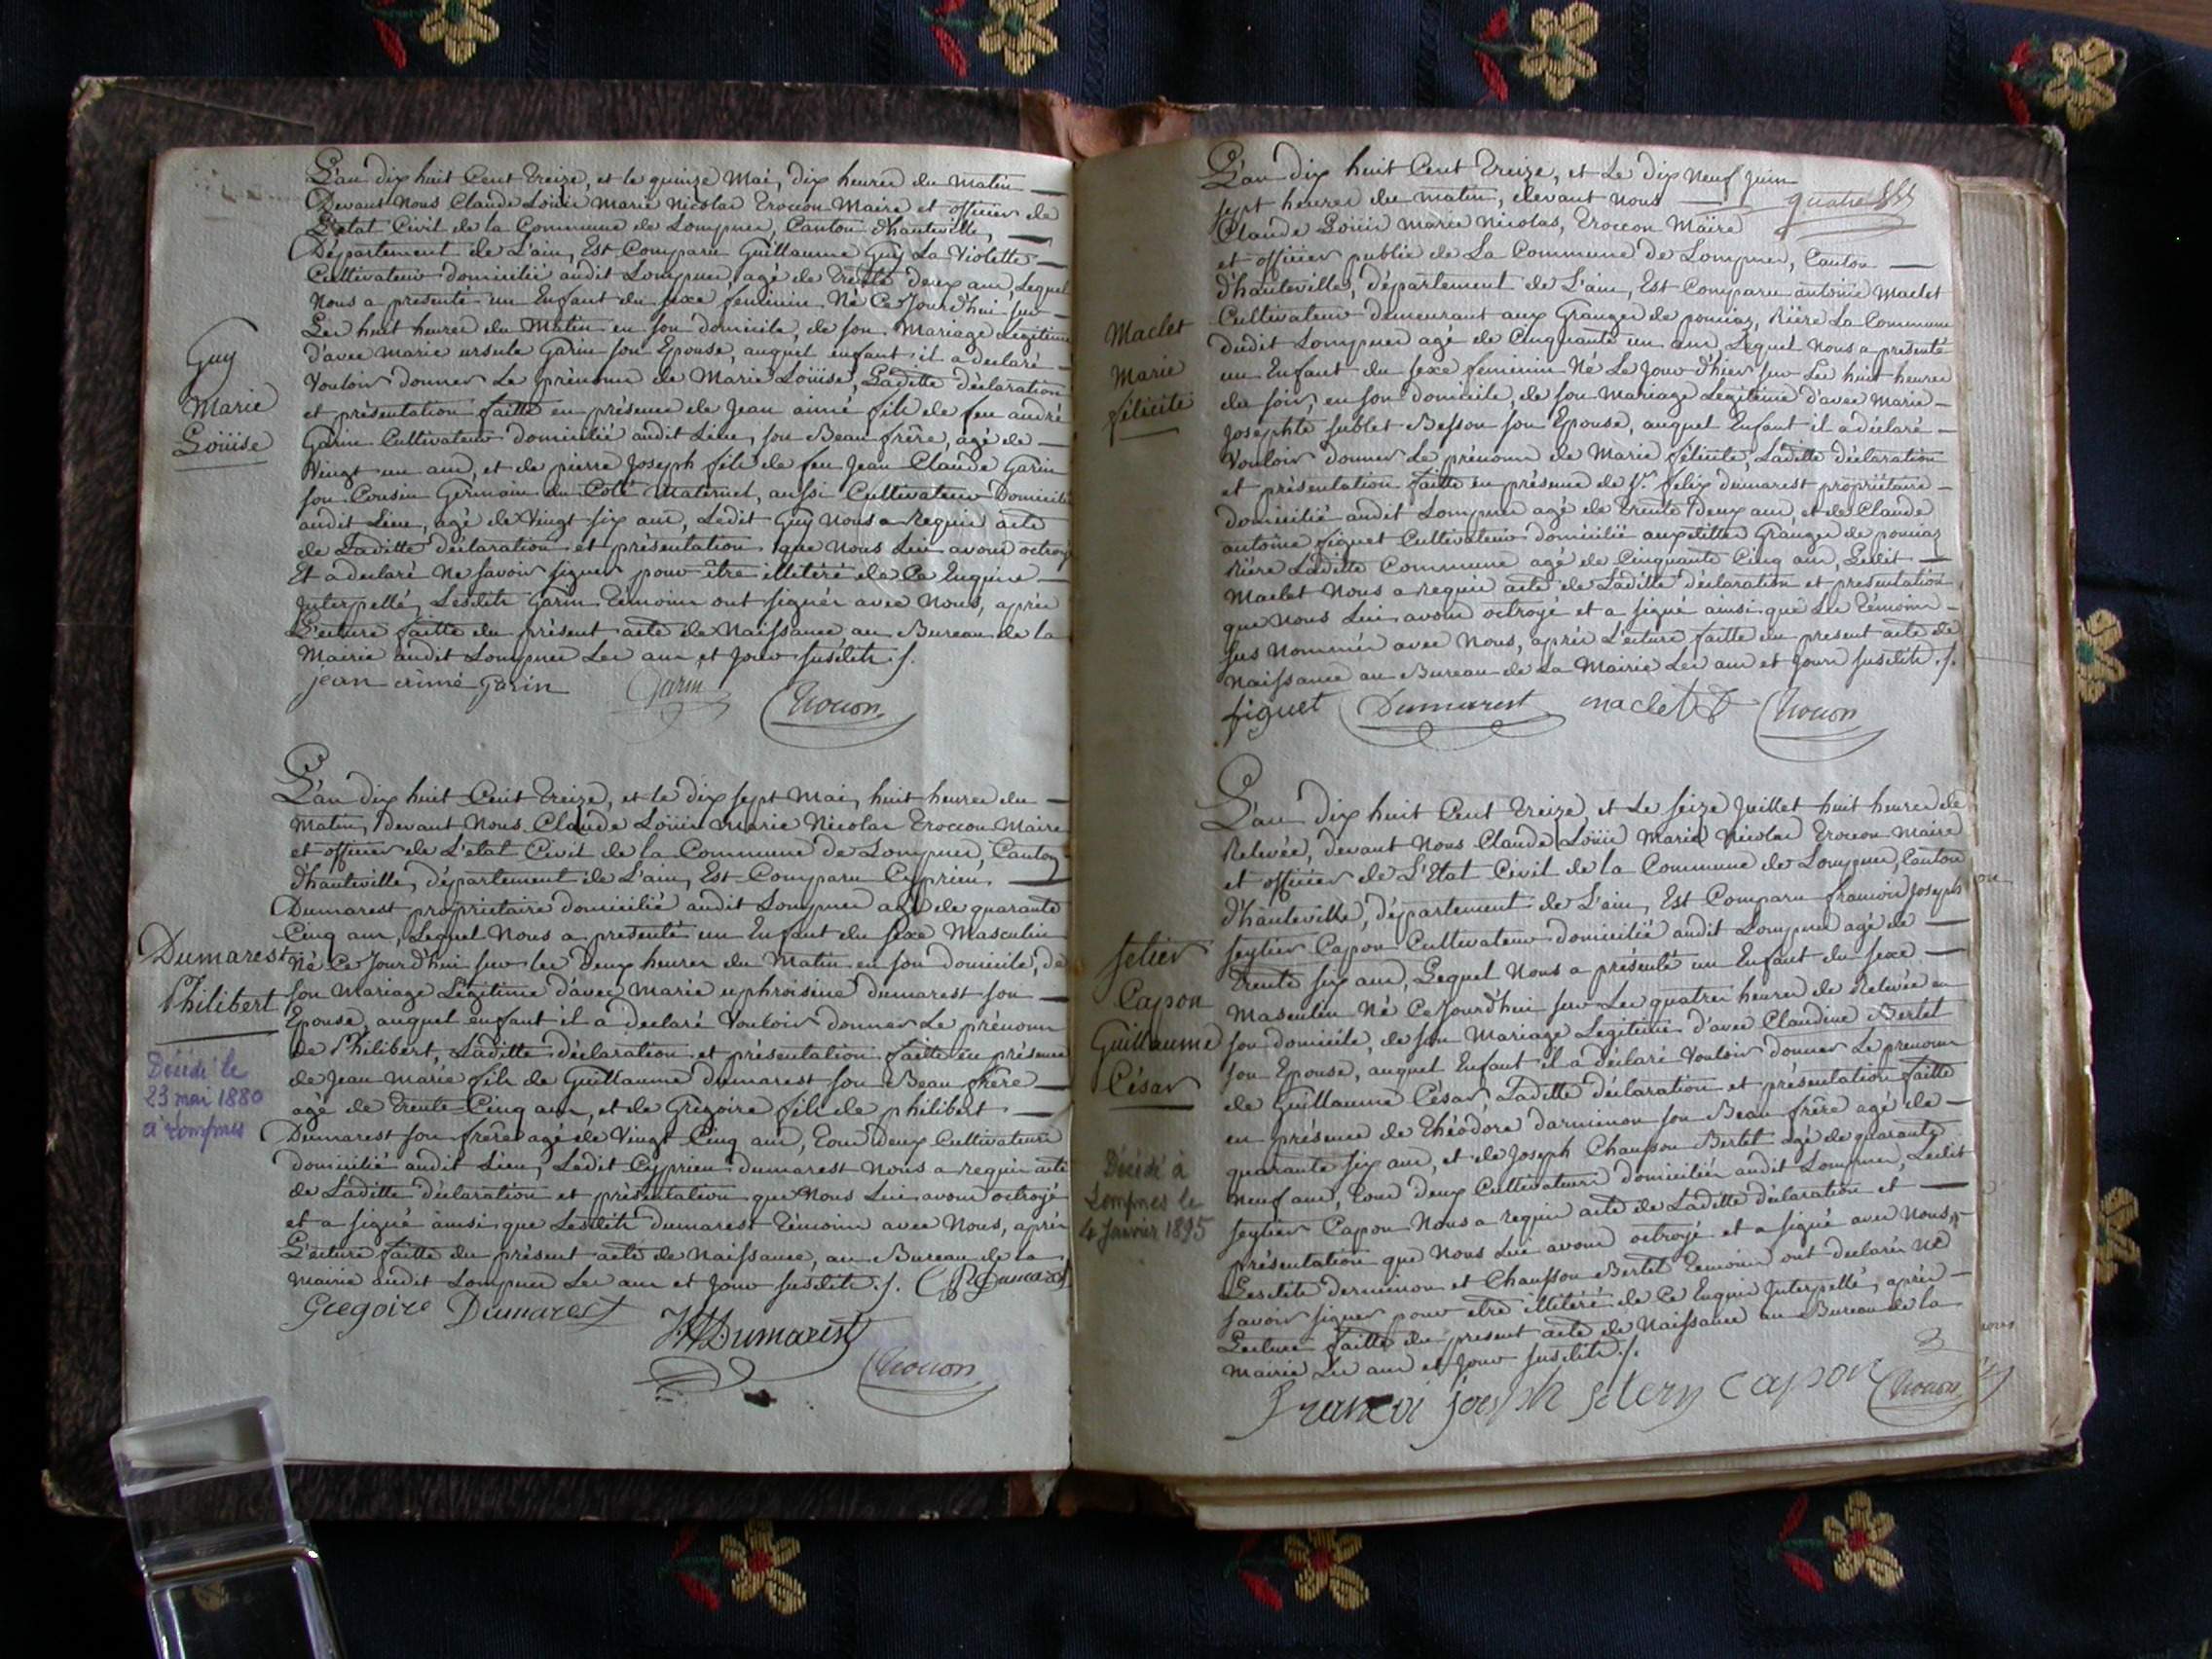 L'an dix huit Cent treize, et le quinze Mai, dix heures du Matin
Devant Nous Claude Loüis Marie Nicolas Troccon Maire et officier de
L'etat Civil de la Commune de Lompnes, Canton d'hauteville,
Département de L'ain, Est Comparu Guillaume Guy La Violette
Cultivateur domicilié audit Lompnes, agé de trente deux ans, Lequel
Nous a presenté un Enfant du sexe feminin Né Ce Jourd'hui sur
Les huit heures du Matin en son domicile, de son Mariage Legitime
d'avec Marie ursule Garin son Epouse, auquel enfant il a declaré
Vouloir donner Le prénom de Marie Loüise, Laditte déclaration
et présentation faitte en présence de Jean aimé fils de feu andré
Garin Cultivateur domicilié audit Lieu, son Beau frère, agé de
Vingt un ans, et de pierre Joseph fils de feu Jean Claude Garin
son Cousin Germain du Coté Maternel, aussi Cultivateur Domicilié
audit Lieu, agé de Vingt six ans, Ledit Guy Nous a Requis acte
de Laditte déclaration et présentation que Nous Lui avons octroyé
Et a declaré Ne savoir signer pour être illitéré de Ce Enquis
Interpellé, Lesdits Garin témoins ont signés avec Nous, après
Lecture faitte du présent acte de Naissance au Bureau de la
Mairie audit Lompnes Les an et Jour susdits ./.
jean aimé Garin Garin Trocon
Guy
Marie
Loüise
L'an dix huit Cent treize, et le dix sept Mai, huit heures du
Matin, devant Nous Claude Loüis Marie Nicolas Troccon Maire
et officier de L'etat Civil de la Commune de Lompnes, Canton
d'hauteville, département de L'ain, Est Comparu Cyprien
Dumarest proprietaire domicilié audit Lompnes agé de quarante
Cinq ans, Lequel Nous a presenté un Enfant du sexe Masculin
Né Ce Jourd'hui sur les deux heures du Matin en son domicile, de
son Mariage Légitime d'avec Marie euphroisine dumarest son
Epouse, auquel enfant il a declaré Vouloir donner Le prénom
de Philibert, Laditte déclaration et présentation faitte en présence
de Jean Marie fils de Guillaume dumarest son Beau frère
agé de trente Cinq ans, et de Grégoire fils de philibert
Dumarest son frère agé de Vingt Cinq ans, tous deux Cultivateurs
domicilié audit Lieu, Ledit Cyprien dumarest Nous a requis acte
de Laditte déclaration et présentation que Nous Lui avons octroyé
et a signé ainsi que Lesdits dumarest témoins avec Nous, après
Lecture faitte du présent acte de Naissance, au Bureau de la
Mairie audit Lompnes Les an et Jour susdits ./. Dumarest
Gregoire Dumarest Dumarest
Trocon
Dumarest
Philibert
Décédé le
23 mai 1880
à Lompnes
L'an dix huit Cent treize, et Le dix Neuf Juin
sept heures du matin, devant Nous quatre
Claude Loüis Marie Nicolas, Troccon Maire
et officier public de La Commune de Lompnes, Canton
d'hauteville, département de L'ain, Est Comparu antoine Maclet
Cultivateur demeurant aux Granges de ponciaz, Rière La Commune
dudit Lompnes agé de Cinquante un ans, Lequel Nous a présenté
un Enfant du sexe feminin Né Le Jour d'hier sur Les huit heures
du soir, en son domicile, de son Mariage Legitime d'avec Marie
Josephte sublet Besson son Epouse, auquel Enfant il a déclaré
Vouloir donner Le prénom de Marie félicité, Laditte déclaration
et présentation faitte en présence de Sr. felix dumarest propriétaire
domicilié audit Lompnes agé de trente deux ans, et de Claude
antoine figuet Cultivateur domicilié auxdittes Granges de ponciaz
Rière Laditte Commune agé de Cinquante Cinq ans, Ledit
Maclet Nous a requis acte de Laditte déclaration et présentation
que Nous Lui avons octroyé et a signé ainsi que Les témoins
sus Nommés avec Nous, après Lecture faitte du present acte de
Naissance au Bureau de La Mairie Les an et Jour susdits ./.
figuet Dumarest maclet Trocon
Maclet
Marie
félicité
L'an dix huit Cent treize, et Le seize Juillet huit heures de
Relevée, devant Nous Claude Loüis Marie Nicolas Troccon Maire
et officier de L'Etat Civil de la Commune de Lompnes, Canton
d'hauteville, département de L'ain, Est Comparu françois Joseph
seytier Capon Cultivateur domicilié audit Lompnes agé de
trente six ans, Lequel Nous a présenté un Enfant du sexe
Masculin Né Ce Jourd'hui sur Les quatre heures de Relevée en
son domicile, de son Mariage Legitime d'avec Claudine Bertet
son Epouse, auquel Enfant il a déclaré Vouloir donner Le prenom
de Guillaume César, Laditte déclaration et présentation faitte
en présence de théodore darminon son Beau frère agé de
quarante six ans, et de Joseph Chausson Bertet agé de quarante
neuf ans, tous deux Cultivateurs domiciliés audit Lompnes, Ledit
seytier Capon Nous a requis acte de Laditte déclaration et
présentation que Nous Lui avons octroyé et a signé avec Nous,
Lesdits derminon et Chausson Bertet temoins ont declarés Ne
savoir signer pour etre illitéré de Ce Enquis Interpellé, après
Lecture faitte du present acte de Naissance au Bureau de la
Mairie Les an et Jour susdits ./.
francoi joseph setery capon Trocon
setier
Capon
Guillaume
César
Décédé à
Lompnes le
4 Janvier 1895